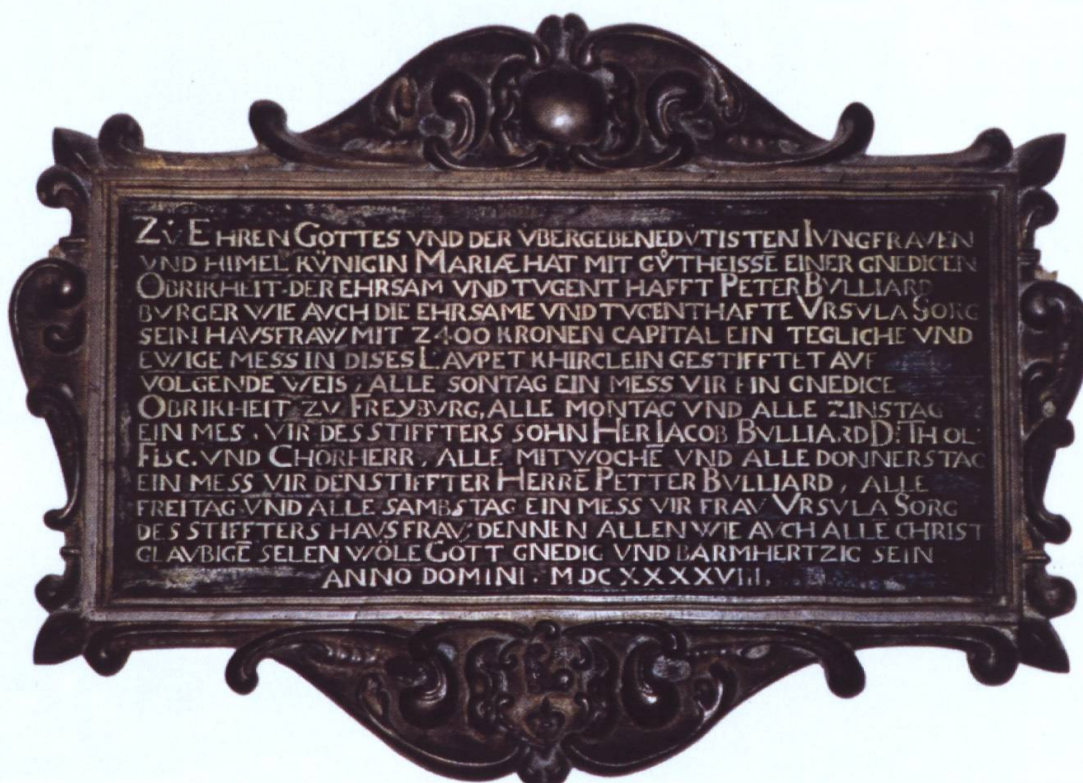 ZV EHREN GOTTES VND DER VBERGEBENEDVTISTEN IVNGFRAVEN
VND HIMEL KÜNIGIN MARIÆ HAT MIT GŮTHEISSĒ EINER GNEDIGEN
OBRIKHEIT·DER EHRSAM VND TVGENT HAFFT PETER BVLLIARD
BVRGER WIE AVCH DIE EHRSAME VND TVGENTHAFTE VRSVLA SORG
SEIN HAVSFRAW MIT 2400 KRONEN CAPITAL EIN TEGLICHE VND
EWIGE MESS IN DISES LAVPET KHIRCLEIN GESTIFFTET AVF
VOLGENDE WEIS, ALLE SONTAG EIN MESS VIR EIN GNEDIGE
OBRIKHEIT ZV FREYBVRG, ALLE MONTAG VND ALLE ZINSTAG
EIN MES. VIR DES STIFFTERS SOHN HER IACOB BVLLIARD D: THOL:
FISC. VND CHORHERR, ALLE MITWOCHĒ VND ALLE DONNERSTAG
EIN MESS VIR DEN STIFFTER HERRĒ PETTER BVLLIARD, ALLE
FREITAG VND ALLE SAMBSTAG EIN MESS VIR FRAV VRSVLA SORG
DES STIFFTERS HAVSFRAV; DENNEN ALLEN WIE AVCH ALLĒ CHRIST
GLAVBIGĒ SELEN WÖLE GOTT GNEDIG VND BARMHERTZIG SEIN
ANNO DOMINI · MDCXXXXVIII.